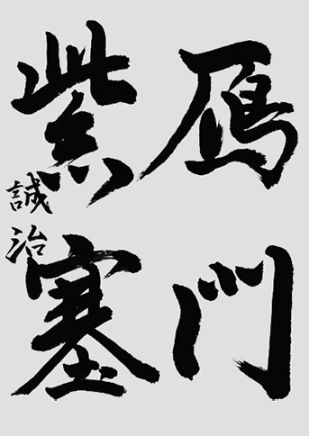 雁門
紫塞
誠治